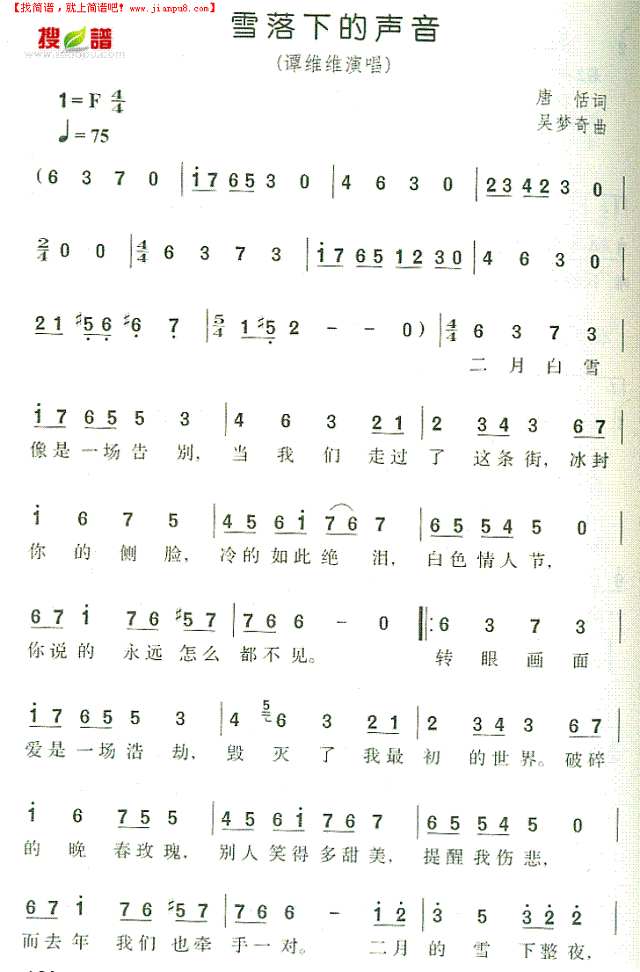 【找简谱，就上简谱吧！】www.jianpu8.com
搜谱
www.sooopu.com
雪落下的声音
(谭维维演唱)
1=F 4/4
♩=75
唐 恬 词
吴梦奇 曲
( 6 3 7 0 | i 7 6 5 3 0 | 4 6 3 0 | 2 3 4 2 3 0 |
2/4 0 0 | 4/4 6 3 7 3 | i 7 6 5 1 2 3 0 | 4 6 3 0 |
2 1 #5 6 #6 7 | 5/4 1 #5 2 - - 0 ) | 4/4 6 3 7 3 |
二 月 白 雪
i 7 6 5 5 3 | 4 6 3 2 1 | 2 3 4 3 6 7 |
像是一场告 别, 当 我 们 走过 了 这条街, 冰封
i 6 7 5 | 4 5 6 i 7 6 7 | 6 5 5 4 5 0 |
你 的 侧 脸, 冷的如此绝 泪, 白色情人节,
6 7 i 7 6 #5 7 | 7 6 6 - 0 |: 6 3 7 3 |
你说的 永远 怎么 都不 见。 转 眼 画 面
i 7 6 5 5 3 | 4 5 6 3 2 1 | 2 3 4 3 6 7 |
爱是一场浩 劫, 毁 灭 了 我最 初 的世界。破碎
i 6 7 5 5 | 4 5 6 i 7 6 7 | 6 5 5 4 5 0 |
的 晚 春玫瑰, 别人笑得多甜美, 提醒我伤悲,
6 7 i 7 6 #5 7 | 7 6 6 - i 2 | 3 5 3 2 2 |
而去年 我们 也牵 手一 对。 二月 的 雪 下整夜,